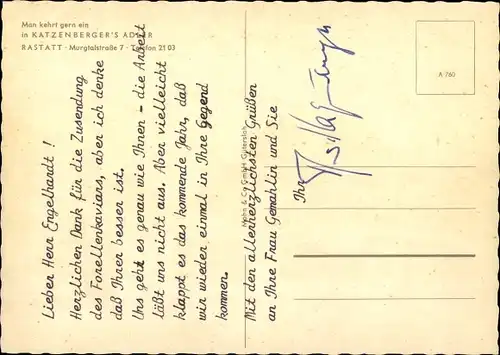 Man kehrt gern ein
in KATZENBERGER'S ADLER
RASTATT · Murgtalstraße 7 · Telefon 21 03
A 760
Mohn & Co GmbH Gütersloh
Lieber Herr Engelhardt !
Herzlichen Dank für die Zusendung
des Forellenkaviars, aber ich denke
daß Ihrer besser ist.
Uns geht es genau wie Ihnen - die Arbeit
läßt uns nicht aus. Aber vielleicht
klappt es das kommende Jahr, daß
wir wieder einmal in Ihre Gegend
kommen.
Mit den allerherzlichsten Grüßen
an Ihre Frau Gemahlin und Sie
Ihr